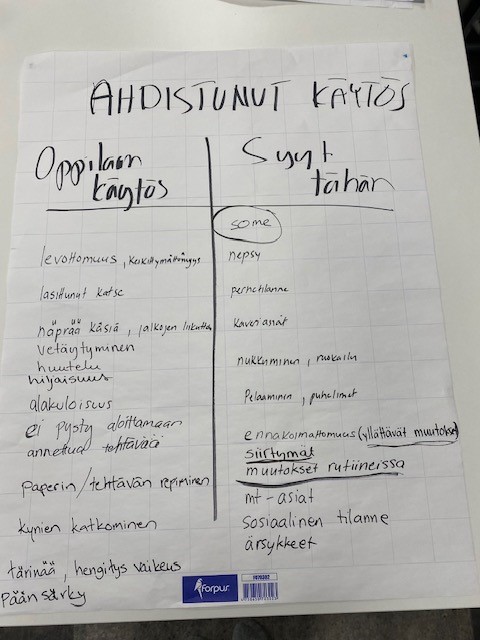 AHDISTUNUT KÄYTÖS
Oppilaan
käytös
levottomuus, keskittymättömyys
lasittunut katse
näprää käsiä, jalkojen liikuttelu
vetäytyminen
huutelu
hiljaisuus
alakuloisuus
ei pysty aloittamaan
annettua tehtävää
paperin/tehtävän repiminen
kynien katkominen
tärinää, hengitys vaikeus
Pään särky
Syyt
tähän
some
nepsy
perhetilanne
kaveriasiat
nukkuminen, ruokailu
Pelaaminen, puhelimet
ennakoimattomuus (yllättävät muutokset)
siirtymät
muutokset rutiineissa
mt-asiat
sosiaalinen tilanne
ärsykkeet
forpus
FO70302